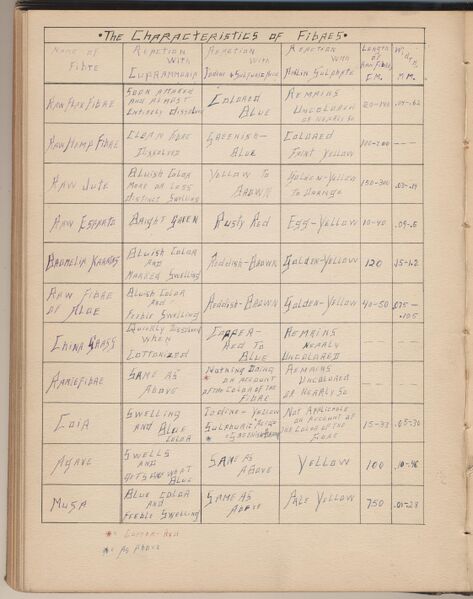 • The Characteristics of Fibres •
Name of Fibre
Reaction With Cuprammonia
Reaction With Iodine & Sulphuric Acid
Reaction With Anilin Sulphate
Length of Raw Fibre C.M.
M.M.
Raw Flax Fibre
Soon attacked and almost entirely dissolved
Colored Blue
Remains Uncolored or nearly so
20-140
Raw Hemp Fibre
Clean Fibre Dissolved
Greenish-Blue
Colored Faint Yellow
100-200
Raw Jute
Bluish Color More or Less Distinct Swelling
Yellow to Brown
Golden-Yellow to Orange
150-300
Raw Esparto
Bright Green
Rusty Red
Egg-Yellow
10-40
Bromelia Karatas
Bluish Color and Marked Swelling
Reddish-Brown
Golden-Yellow
120
Raw Fibre of Aloe
Bluish Color and Feeble Swelling
Reddish-Brown
Golden-Yellow
40-50
.075-.105
China Grass
Quickly Dissolved When Cottonized
Copper-Red to Blue
Remains Nearly Uncolored
Ramie Fibre
Same as Above
Nothing Doing on account of the Color of the Fibre
Remains Uncolored or Nearly So
Coia
Swelling and Blue Color
Iodine-Yellow Sulphuric Acid
Not Applicable on Account of the Color of the Fibre
15-33
.05-30
Agave
Swells and Gets Somewhat Blue
Same as Above
Yellow
100
Musa
Blue Color and Feeble Swelling
Same as Above
Pale Yellow
750
.01-28
*= Copper-Red
*= As Above